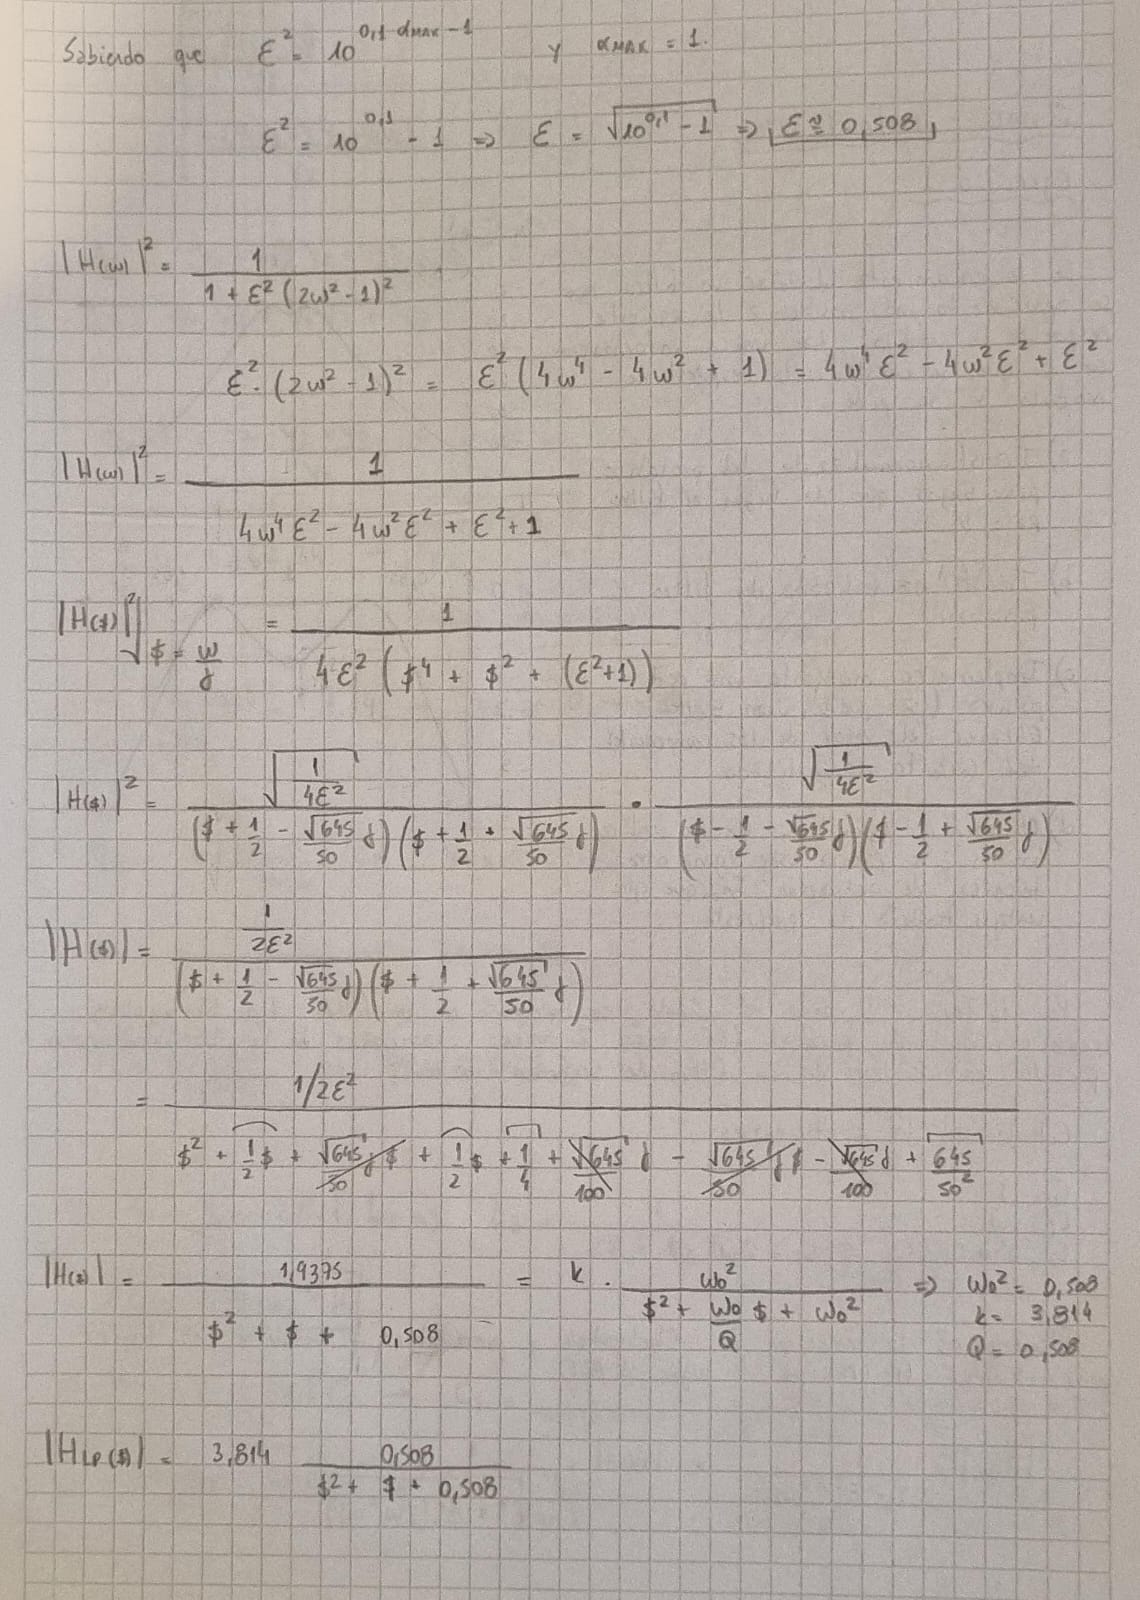 Sabiendo que ε² = 10^(0,1 αMAX - 1) y αMAX = 1.
ε² = 10^(0,1) - 1 => ε = √(10^(0,1) - 1) => ε ≅ 0,508
|H(ω)|² = 1 / (1 + ε² (2ω² - 1)²)
ε² · (2ω² - 1)² = ε² (4ω⁴ - 4ω² + 1) = 4ω⁴ε² - 4ω²ε² + ε²
|H(ω)|² = 1 / (4ω⁴ε² - 4ω²ε² + ε² + 1)
|H($)|²|$ = ω/j = 1 / (4ε² ($⁴ + $² + (ε²+1)))
|H($)|² = √(1/4ε²) / (($ + 1/2 - √645/50 j)($ + 1/2 + √645/50 j)) · √(1/4ε²) / (($ - 1/2 - √645/50 j)($ - 1/2 + √645/50 j))
|H($)| = (1/2ε²) / (($ + 1/2 - √645/50 j)($ + 1/2 + √645/50 j))
= 1/2ε² / ($² + 1/2 $ + √645/50 j $ + 1/2 $ + 1/4 + √645/100 j - √645/50 j $ - √645/100 j + 645/50²)
|H($)| = 1,9375 / ($² + $ + 0,508) = k · ω0² / ($² + ω0/Q $ + ω0²) => ω0² = 0,508
k = 3,814
Q = 0,508
|HLP($)| = 3,814 0,508 / ($² + $ + 0,508)